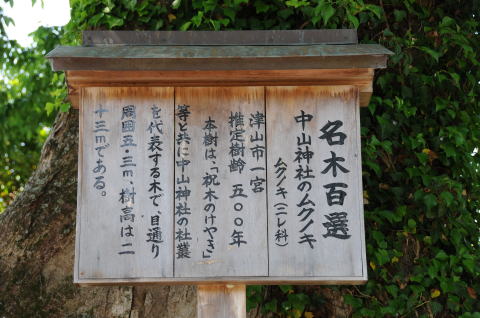 名木百選
中山神社のムクノキ
ムクノキ（ニレ科）
津山市一宮
推定樹齢 五〇〇年
本樹は、「祝木のけやき」
等と共に中山神社の社叢
を代表する木で、目通り
周囲五・三m、樹高は二
十三mである。